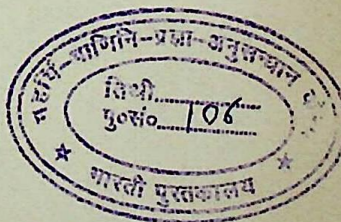 महर्षि-पाणिनि-प्रज्ञा-अनुसन्धान
तिथी..............
पु०सं० 106
भारती पुस्तकालय